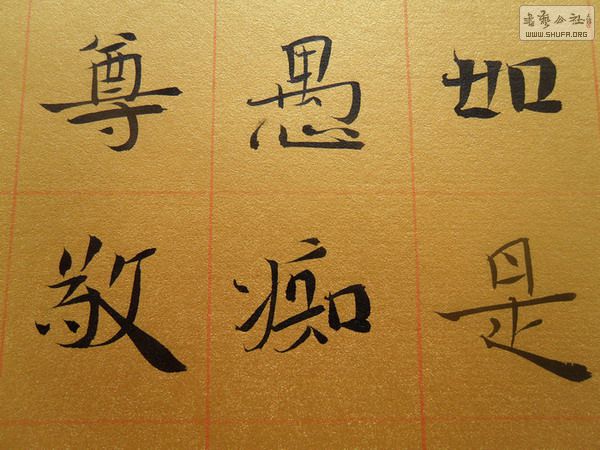 如是
愚痴
尊敬
書藝公社
WWW.SHUFA.ORG